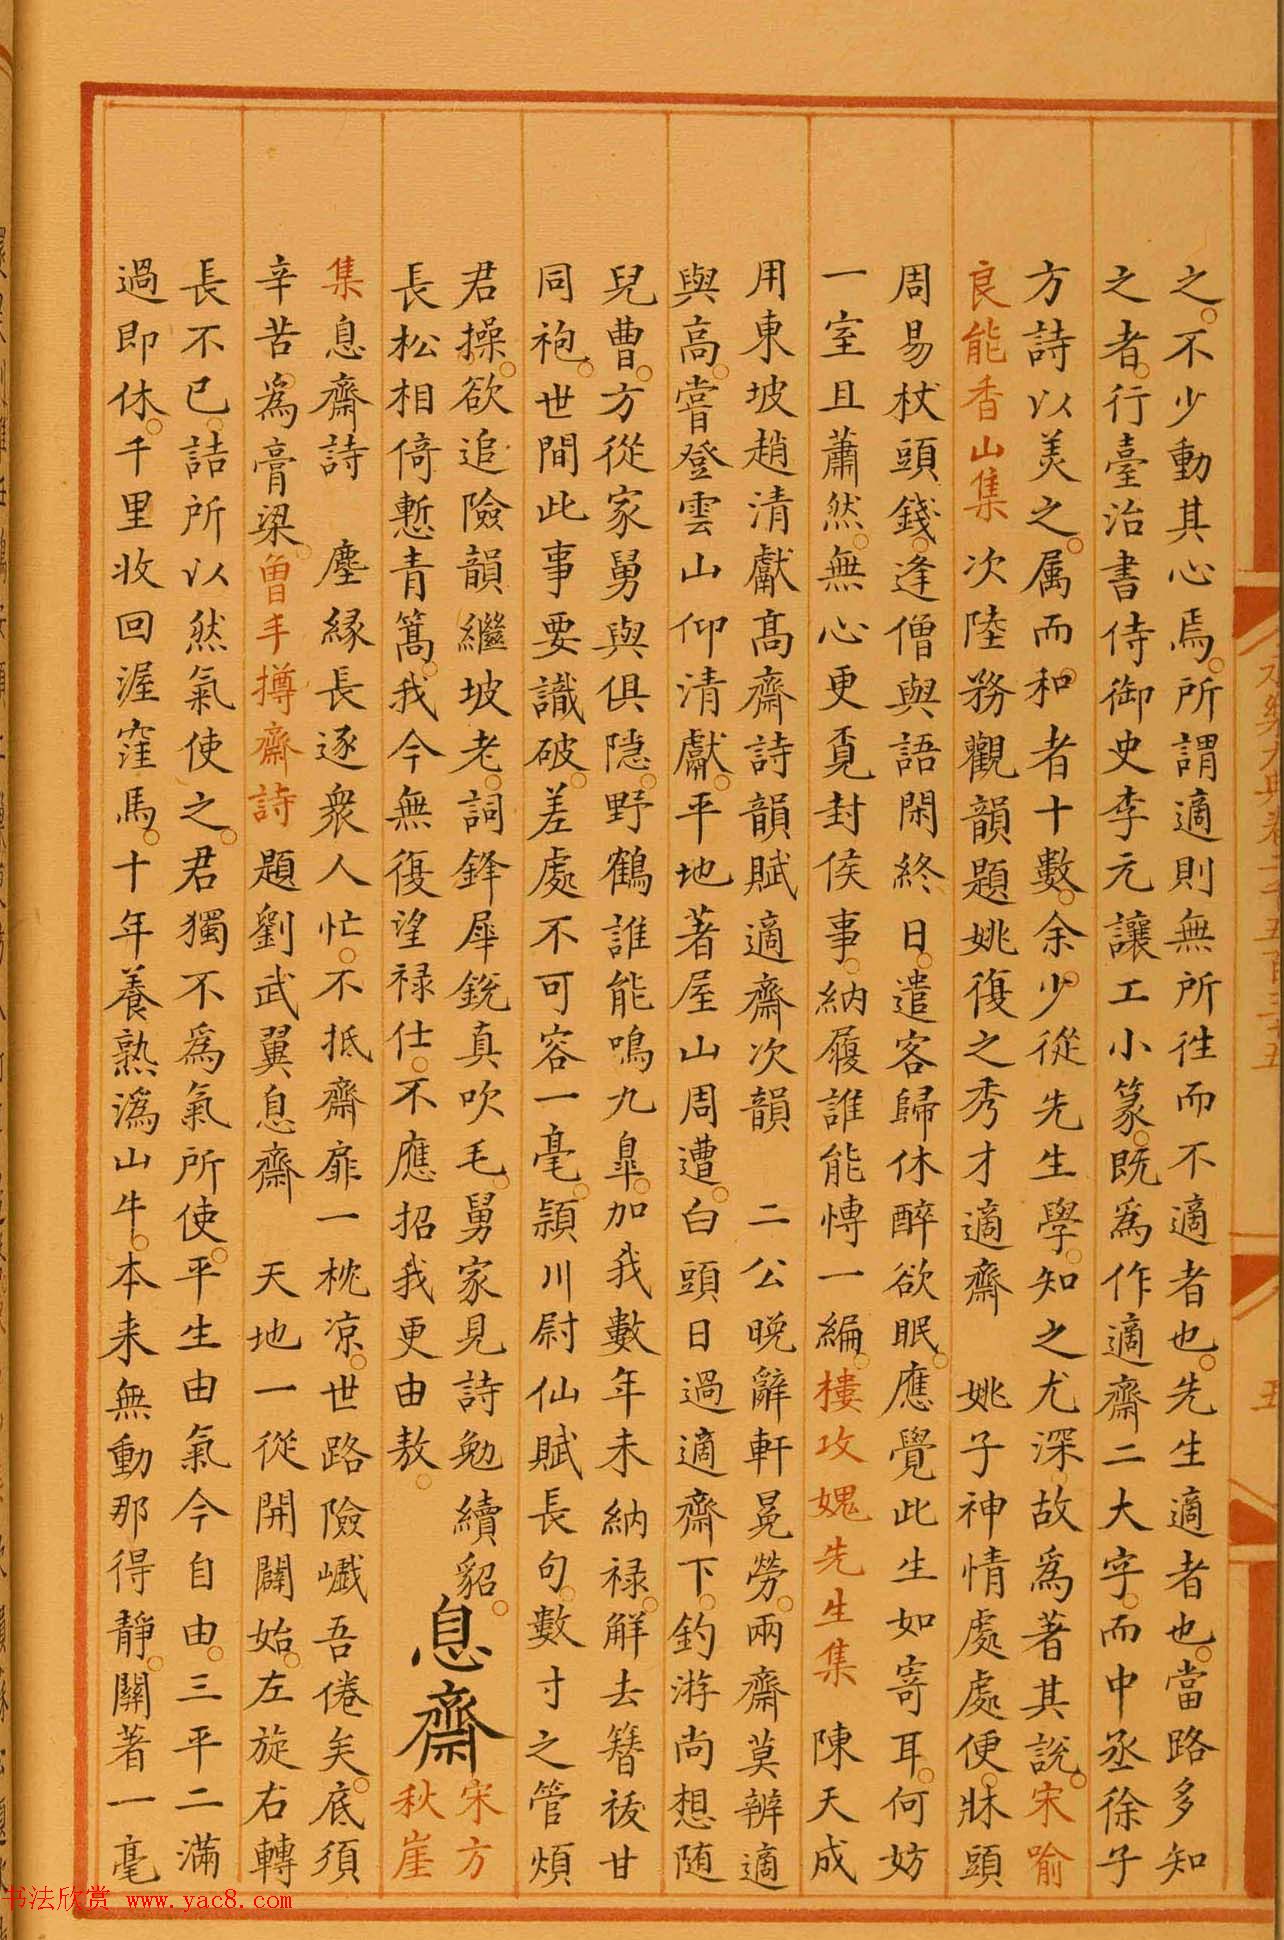 之不少動其心焉所謂適則無所徃而不適者也先生適者也當路多知
之者行臺治書侍御史李元讓工小篆既為作適齋二大字而中丞徐子
方詩以美之属而和者十數余少從先生學知之尤深故為著其說宋喻
良能香山集次陸務觀韻題姚復之秀才適齋 姚子神情處處便牀頭
周易杖頭錢逢僧與語閑終日遣客歸休醉欲眠應覺此生如寄耳何妨
一室且蕭然無心更覓封侯事納履誰能愽一編樓攻媿先生集 陳天成
用東坡趙清獻髙齋詩韻賦適齋次韻 二公晚辭軒冕勞兩齋莫辨適
與高嘗登雲山仰清獻平地著屋山周遭白頭日過適齋下釣游尚想随
兒曹方從家舅與俱隠野鶴誰能鳴九臯加我數年未納禄解去簪祓甘
同袍世間此事要識破差處不可容一毫潁川尉仙賦長句數寸之管煩
君操欲追險韻繼坡老詞鋒犀銳真吹毛舅家見詩勉續貂
長松相倚慙青篙我今無復望禄仕不應招我更由敖
息齋
宋方
秋崖
集息齋詩 塵縁長逐衆人忙不抵齋扉一枕凉世路險巇吾倦矣底須
辛苦為膏粱曾手摶齋詩題劉武翼息齋 天地一從開闢始左旋右轉
長不已詰所以然氣使之君獨不為氣所使平生由氣今自由三平二滿
過即休千里收回渥窪馬十年養熟溈山牛本来無動那得静關著一毫
永樂大典卷二千五百三十五
五
书法欣赏 www.yac8.com